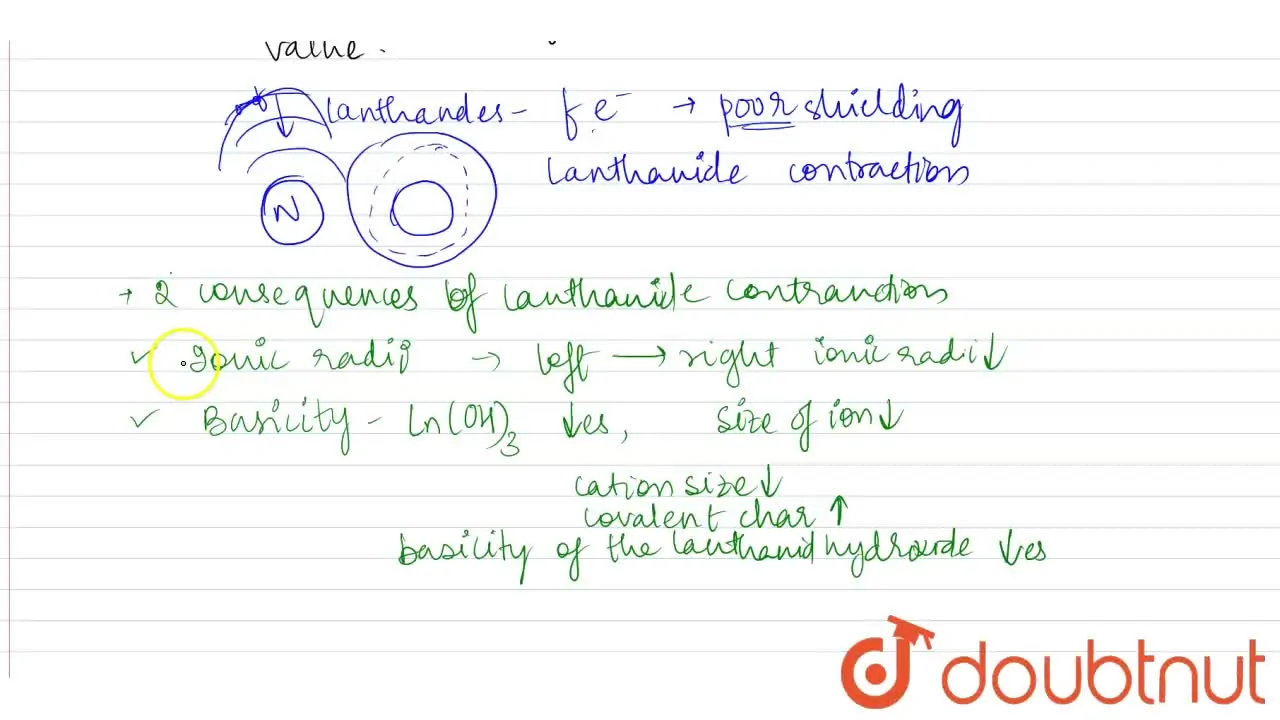 value.
lanthandes - f e⁻ → poor shielding
lanthanide contraction
N
→ 2 consequences of lanthanide contranction
✓ Ionic radii → left → right ionic radi ↓
✓ Basicity - Ln(OH)₃ ↓es, size of ion ↓
cation size ↓
covalent char ↑
basicity of the lanthanid hydroxide ↓es
doubtnut